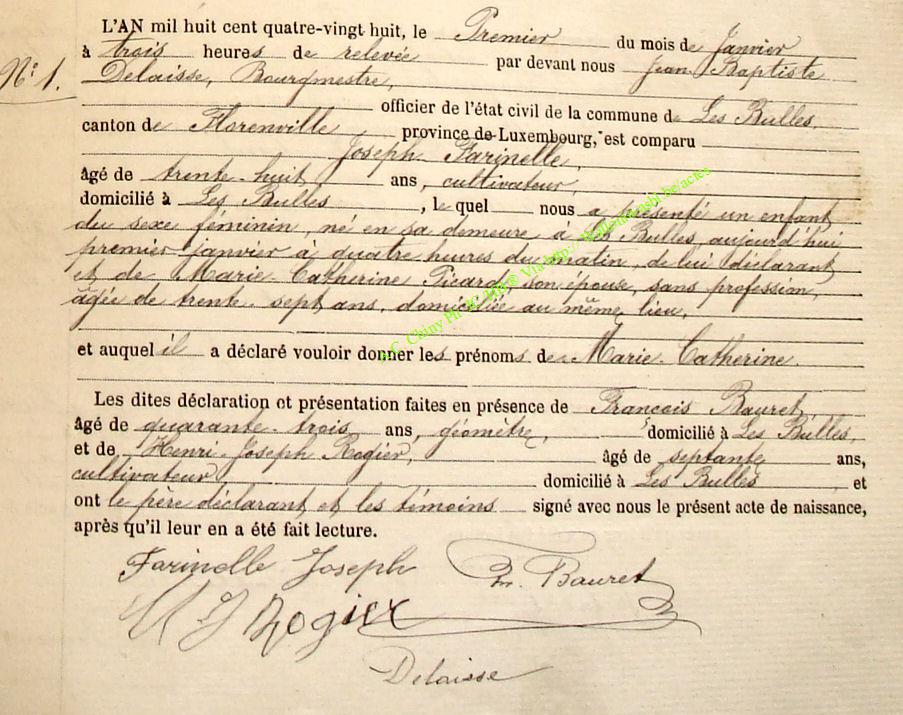 L'AN mil huit cent quatre-vingt huit, le Premier du mois de Janvier
à trois heures de relevée par devant nous Jean Baptiste
N° 1.
Delaisse, Bourgmestre,
officier de l'état civil de la commune de Les Bulles,
canton de Florenville province de Luxembourg, est comparu
Joseph Farinelle,
âgé de trente-huit ans, cultivateur,
domicilié à Les Bulles, lequel nous a présenté un enfant
du sexe féminin, né en sa demeure à Les Bulles, aujourd'hui
premier janvier à quatre heures du matin, de lui déclarant
et de Marie Catherine Picard, son épouse, sans profession,
âgée de trente-sept ans, domiciliée au même lieu,
et auquel il a déclaré vouloir donner les prénoms de Marie-Catherine.
Les dites déclaration et présentation faites en présence de François Bauret,
âgé de quarante-trois ans, géomètre, domicilié à Les Bulles,
et de Henri-Joseph Rogier, âgé de septante ans,
cultivateur domicilié à Les Bulles et
ont le père déclarant et les témoins signé avec nous le présent acte de naissance,
après qu'il leur en a été fait lecture.
Farinelle Joseph Fr. Bauret
H J Rogier
Delaisse